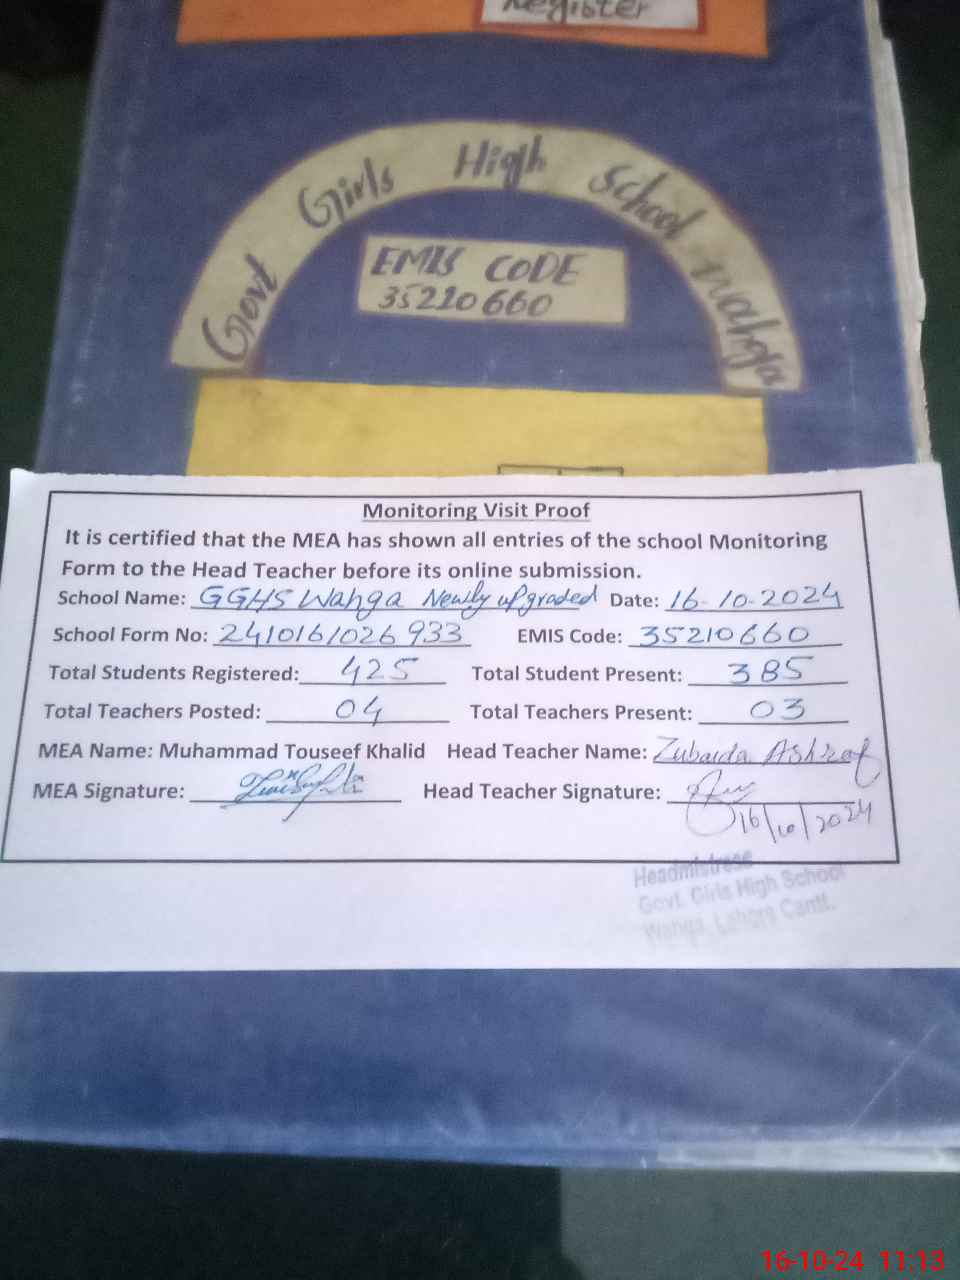 Register
Govt Girls High School Wahga
EMIS CODE
35210660
Monitoring Visit Proof
It is certified that the MEA has shown all entries of the school Monitoring
Form to the Head Teacher before its online submission.
School Name: GGHS Wahga Newly upgraded Date: 16-10-2024
School Form No: 2410161026933 EMIS Code: 35210660
Total Students Registered: 425 Total Student Present: 385
Total Teachers Posted: 04 Total Teachers Present: 03
MEA Name: Muhammad Touseef Khalid Head Teacher Name: Zubaida Ashraf
MEA Signature: Head Teacher Signature:
16/10/2024
Headmistress
Govt. Girls High School
Wahga, Lahore Cantt.
16-10-24 11:13